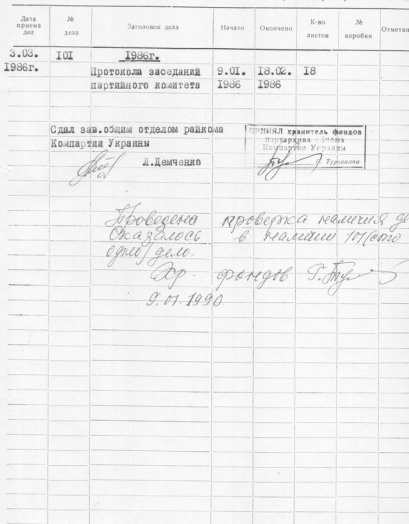 Дата приема дел № дела Заголовок дела Начато Окончено К-во листов № коробки Отметки
3.03. 101 1986г.
1986г. Протокола заседаний 9.01. 18.02. 18
партийного комитета 1986 1986
Сдал зав.общим отделом райкома
Компартии Украины
Л.Демченко
ПРИНЯЛ хранитель фондов
партархива
Компартии Украины
Проведена проверка наличия
Оказалось в наличии 101 (сто
одно) дело.
Хр. фондов Г.
9.01-1990